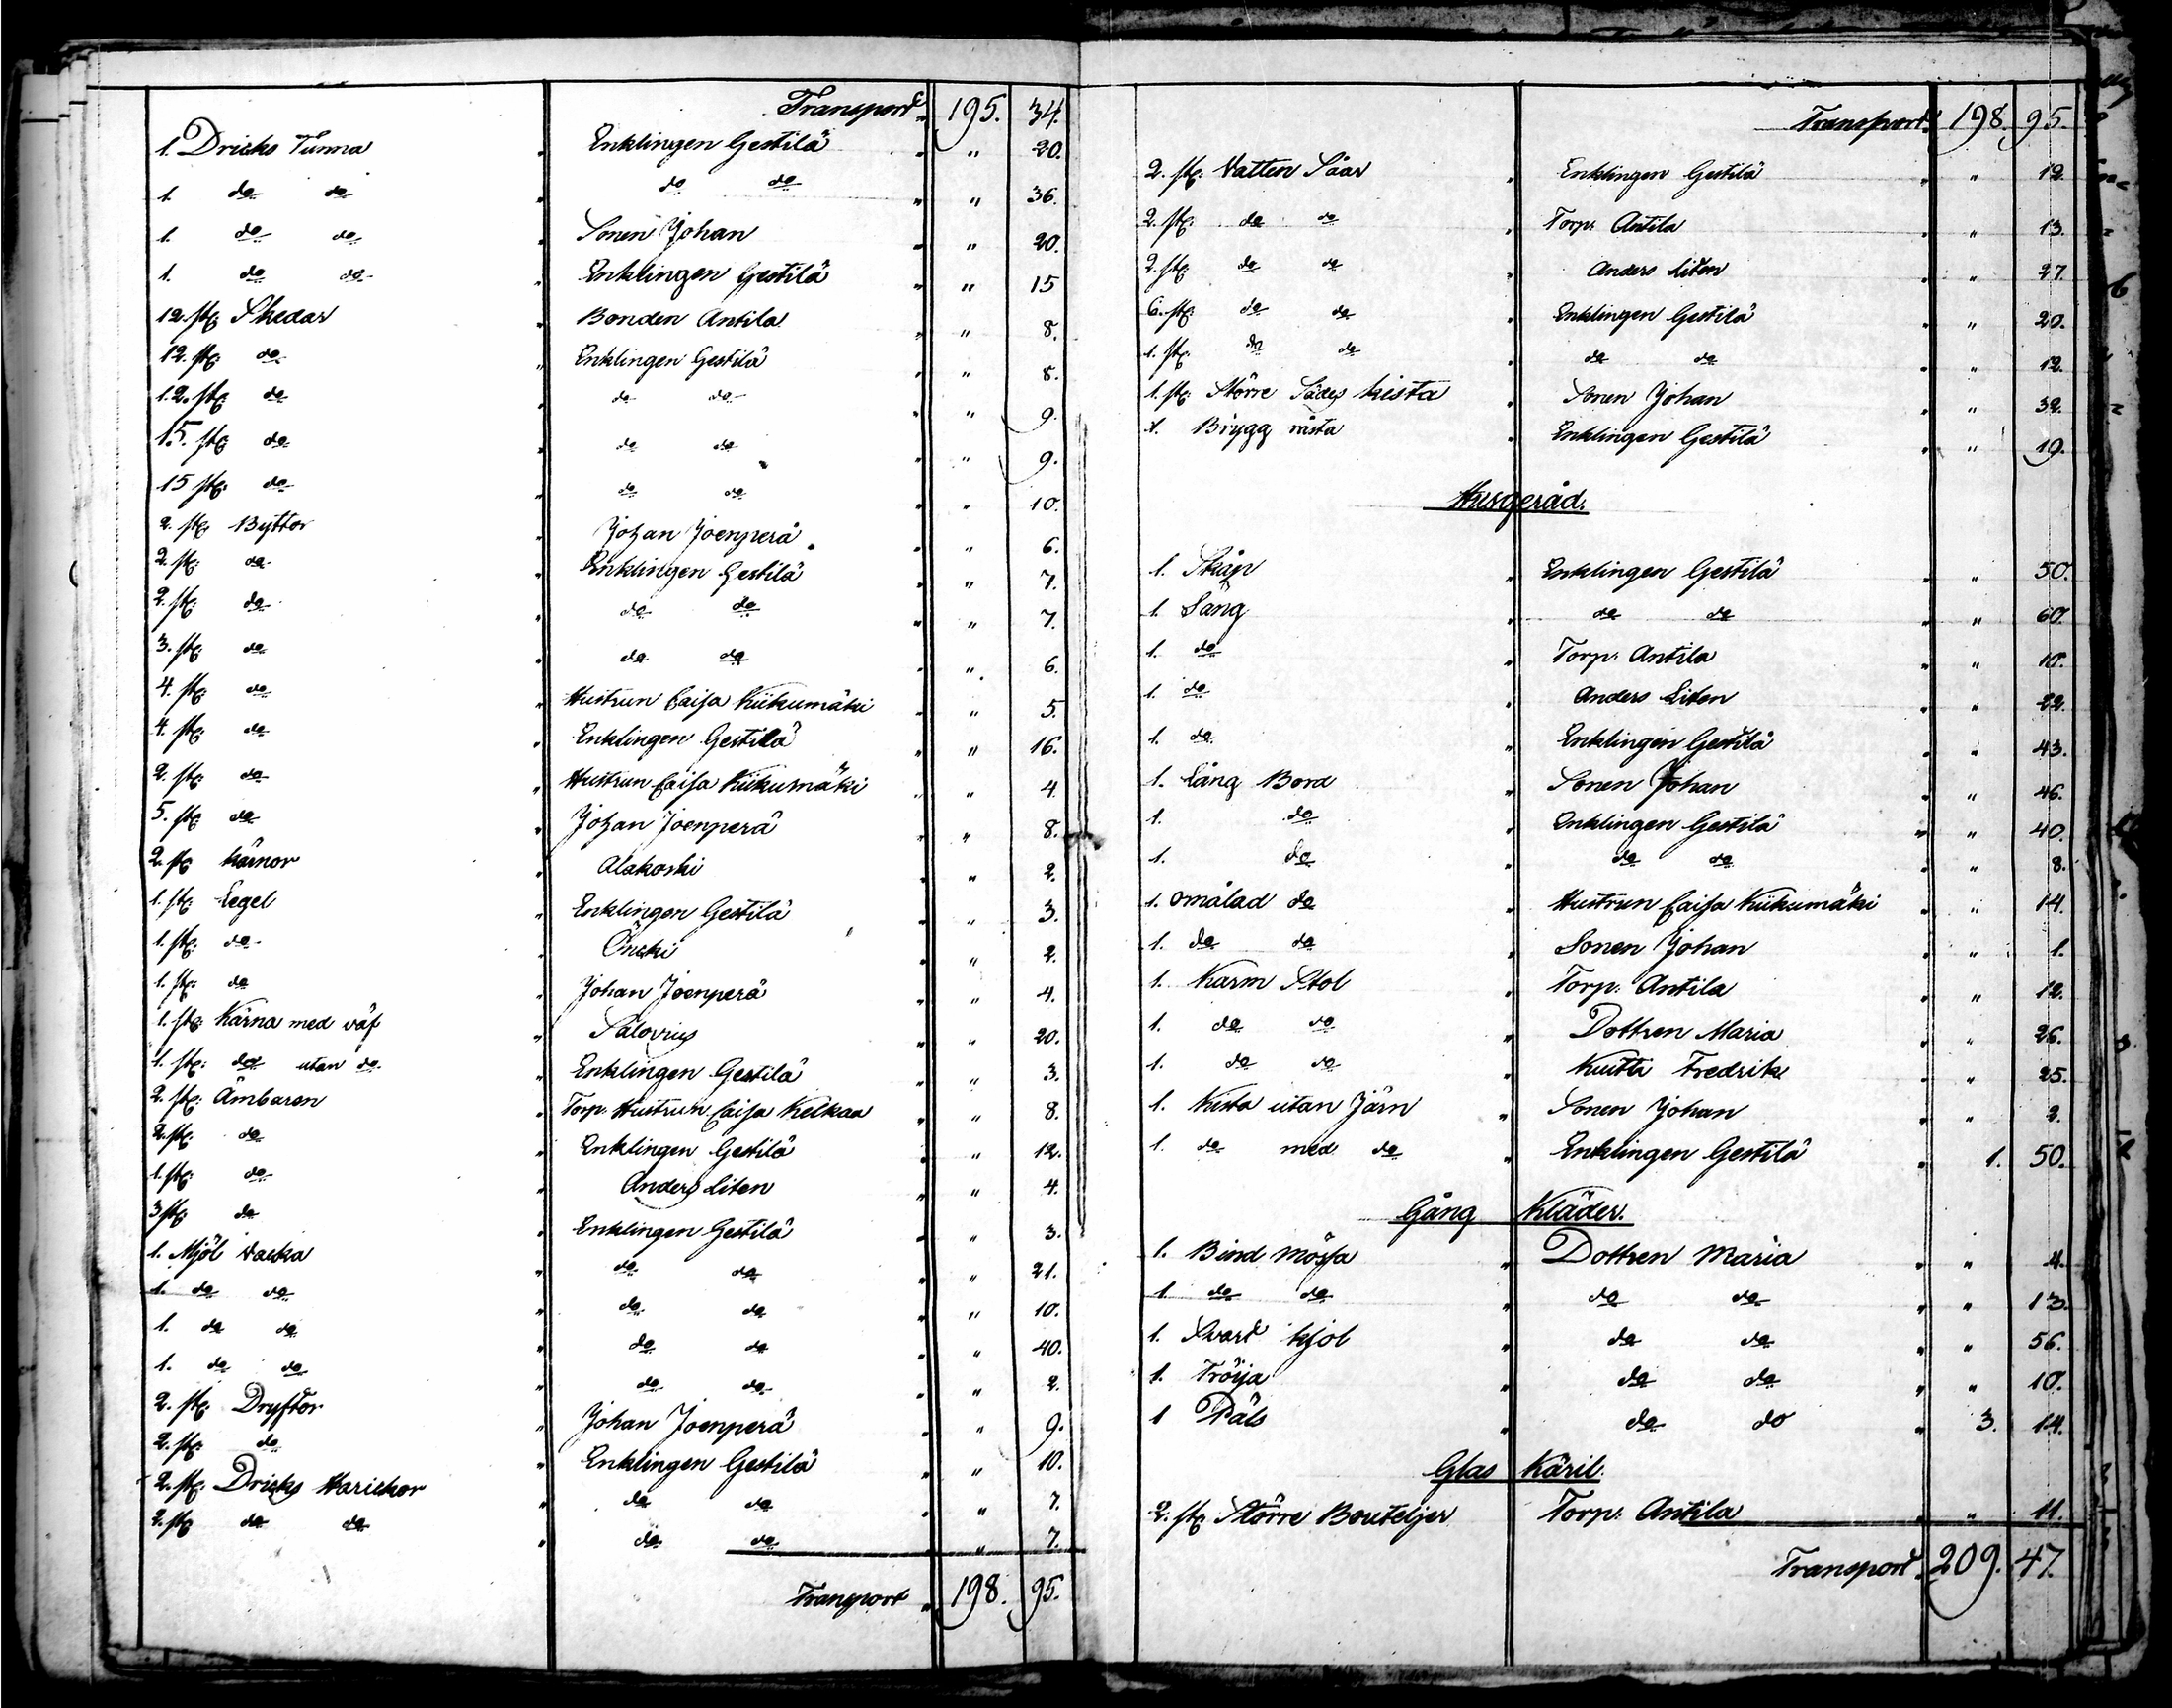 Transport 195. 34.
1. Dricks Tunna " Enklingen Gestilä " " 20.
1. do do " do do " " 36.
1. do do " Sonen Johan " " 20.
1. do do " Enklingen Gestilä " " 15
12. st: Skedar " Bonden Antila " " 8.
12. st: do " Enklingen Gestilä " " 8.
12. st: do " do do " " 9.
15. st: do " do do " " 9.
15 st: do " do do " " 10.
2. st: Byttor " Johan Joenperä " " 6.
2. st: do " Enklingen Gestilä " " 7.
2. st: do " do do " " 7.
3. st: do " do do " " 6.
4. st: do " Hustrun Caisa Kiikumäki " " 5.
4. st: do " Enklingen Gestilä " " 16.
2. st: do " Hustrun Caisa Kiikumäki " " 4
5. st: do " Johan Joenperä " " 8.
2. st: kärnor " Alakoski " " 2.
1. st: Legel " Enklingen Gestilä " " 3.
1. st: do " " " 2.
1. st: do " Johan Joenperä " " 4.
1. st: Kärna med väf " Salovius " " 20.
1. st: do utan do " Enklingen Gestilä " " 3.
2. st: Ämbaren " Torp. Hustrun Caisa Kelkaa " " 8.
2. st: do " Enklingen Gestilä " " 12.
1. st: do " Anders Liten " " 4.
3 st: do " Enklingen Gestilä " " 3.
1. Mjöl Vacka " do do " " 21.
1. do do " do do " " 10.
1. do do " do do " " 40.
1. do do " do do " " 2.
2. st: Dryftor " Johan Joenperä " " 9.
2. st: do " Enklingen Gestilä " " 10.
2. st: Dricks Harickor " do do " " 7.
2. st: do do " do do " " 7.
Transport " 198. 95.
Transport " 198. 95.
2. st: Vatten Såar " Enklingen Gestilä " " 12
2. st: do do " Torp. Antila " " 13.
2. st: do do " Anders Liten " " 27.
6. st: do do " Enklingen Gestilä " " 20.
1. st: do do " do do " " 12.
1. st: Större Sädes kista " Sonen Johan " " 32.
1. Brygg råsta " Enklingen Gestilä " " 19.
Husgeråd.
1. Skåp " Enklingen Gestilä " " 50.
1. Säng " do do " " 60.
1. do " Torp. Antila " " 10.
1. do " Anders Liten " " 22.
1. do " Enklingen Gestilä " " 43.
1. Lång Bord " Sonen Johan " " 46.
1. do " Enklingen Gestilä " " 40.
1. do " do do " " 8.
1. omålad do " Hustrun Caisa Kiikumäki " " 14.
1. do do " Sonen Johan " " 1.
1. Karm Stol " Torp. Antila " " 12.
1. do do " Dottren Maria " " 26.
1. do do " Kuitti Fredrik " " 25.
1. Kista utan Järn " Sonen Johan " " 2.
1. do med do " Enklingen Gestilä " 1. 50.
Gång Kläder.
1. Bind mössa " Dottren Maria " " 4.
1 do do " do do " " 13
1. Svart kjol " do do " " 56.
1. Tröija " do do " " 10.
1 Päls " do do " 3. 14.
Glas Käril.
2. st: Större Bouteljer " Torp. Antila " " 11.
Transport " 209. 47.